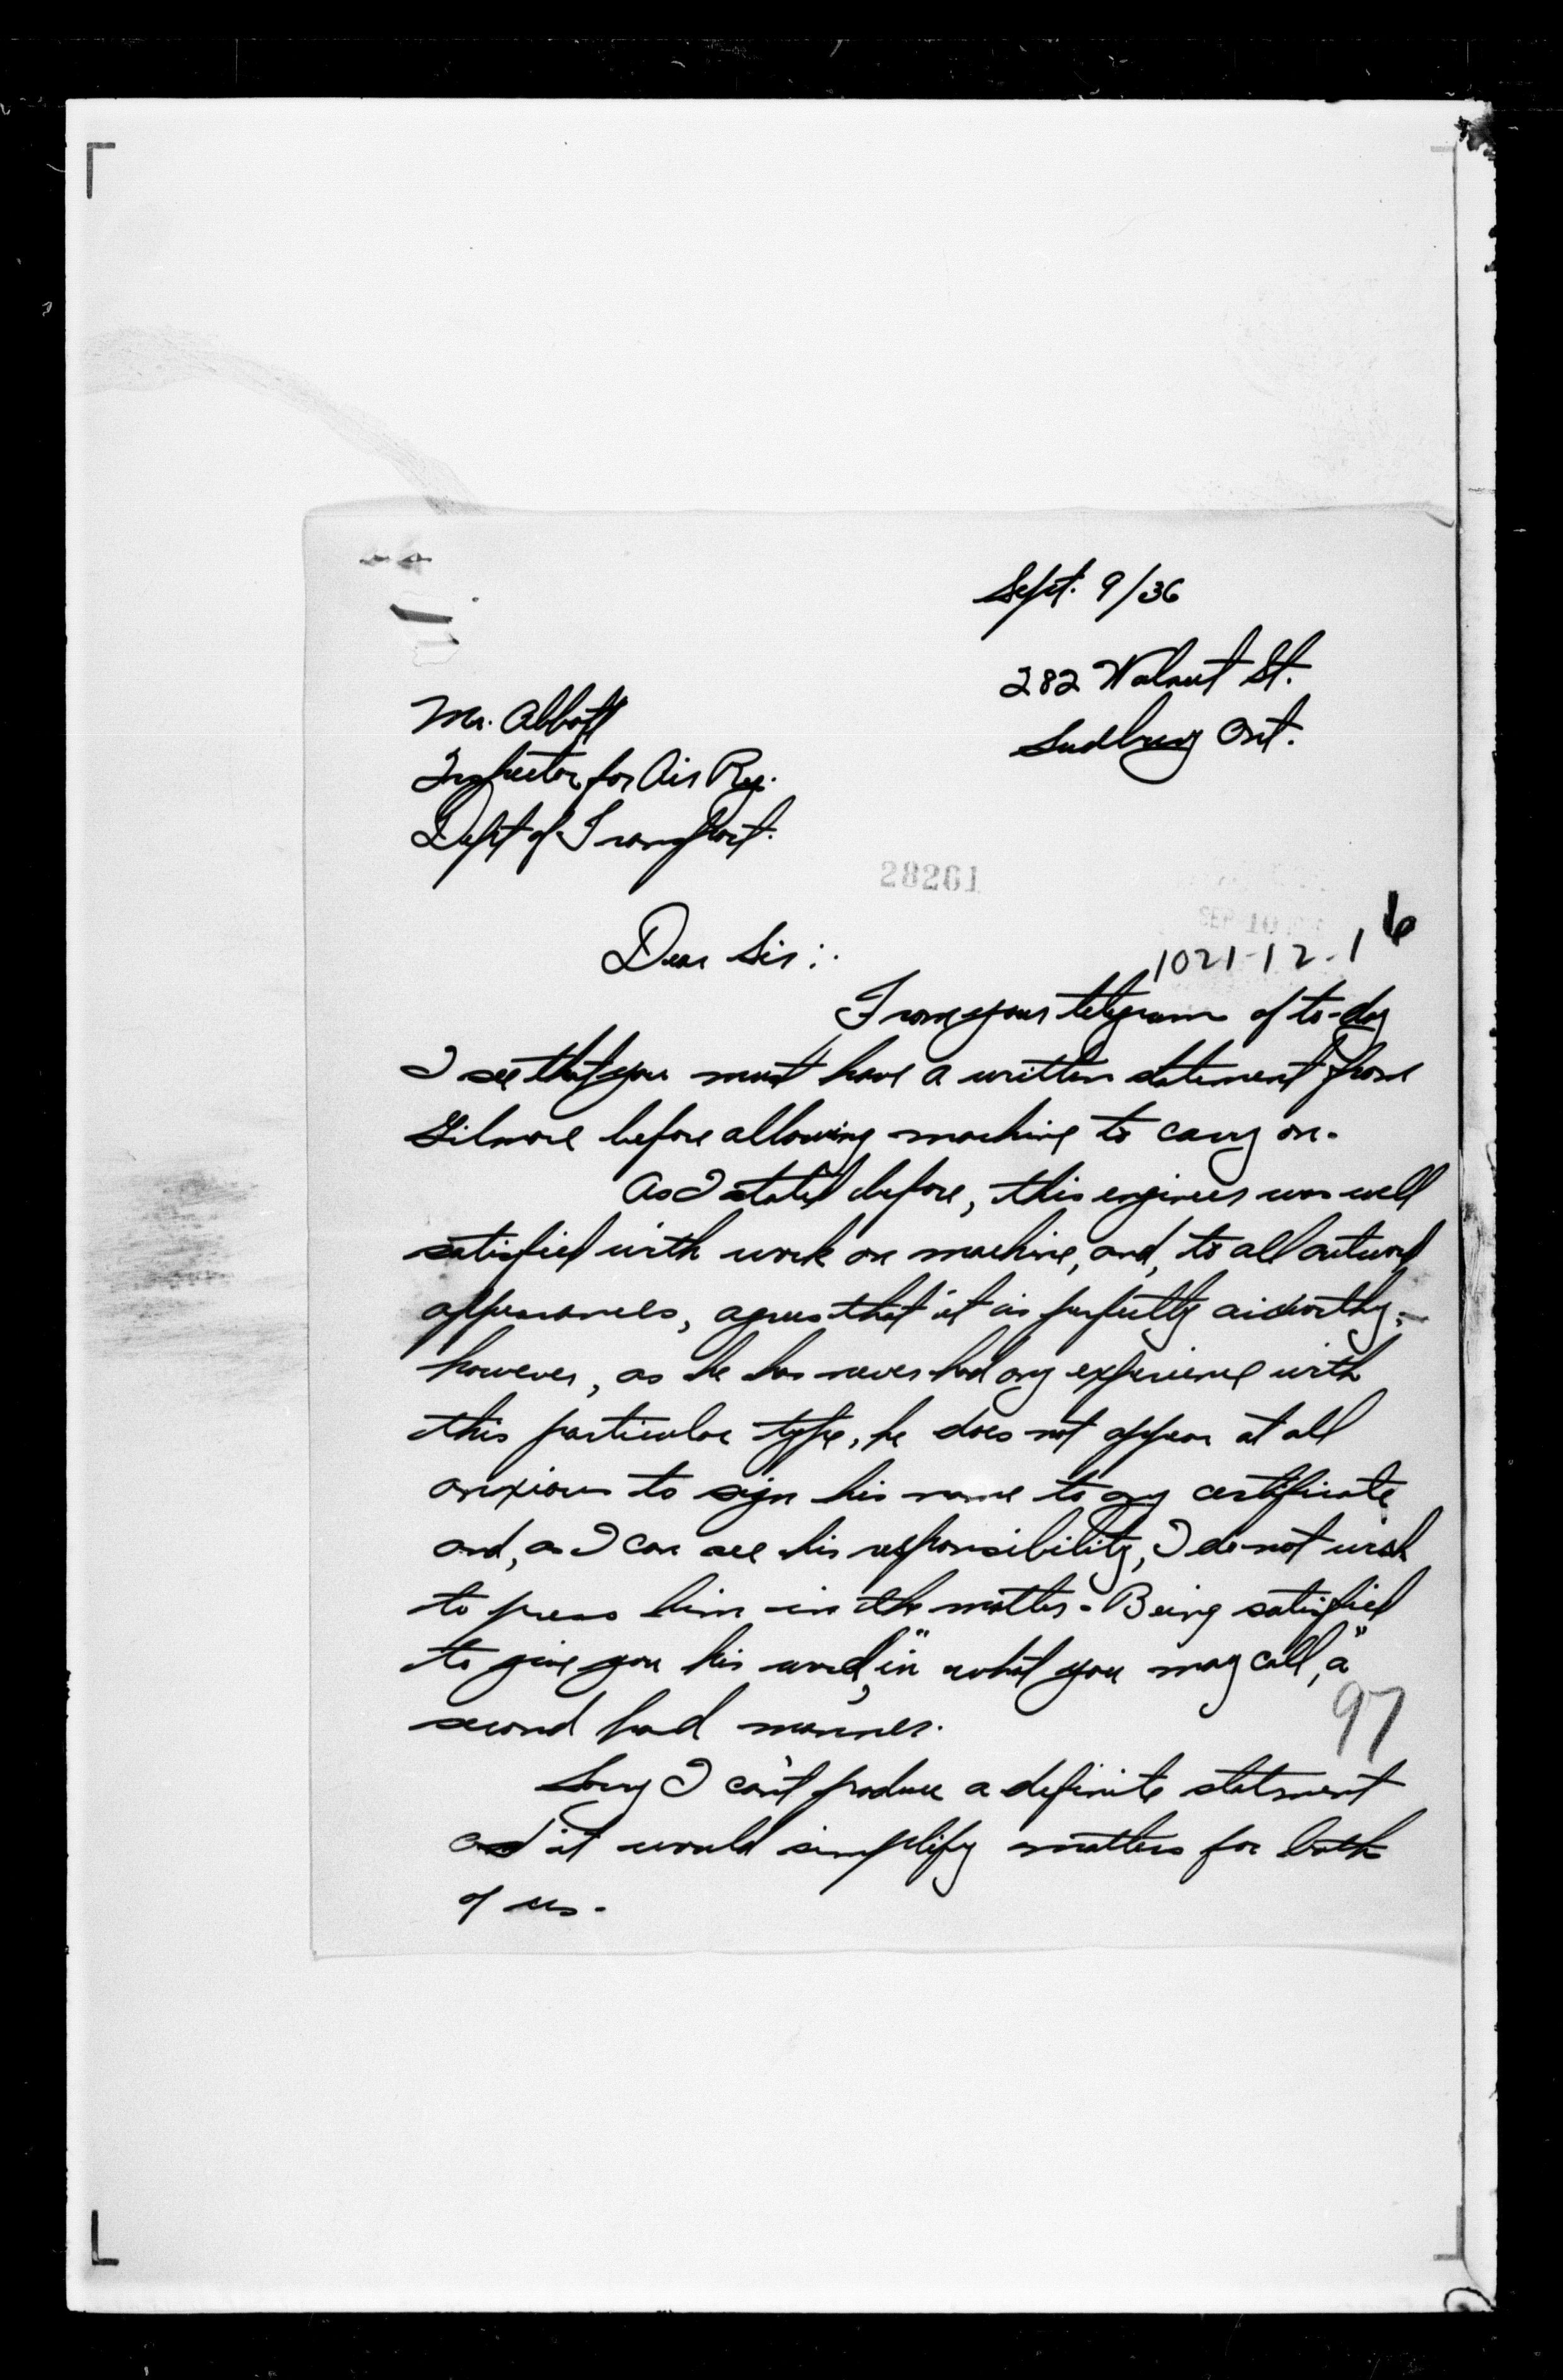 Sept. 9/36
282 Walnut St.
Sudbury Ont.
Mr. Abbott
Inspector for Air Reg.
Dept of Transport.
28261
SEP 10
1021-12-1 6
Dear Sir:.
From your telegram of to-day
I see that you must have a written statement from
Gilmore before allowing machine to carry on.
As I stated before, this engineer was well
satisfied with work on machine, and, to all outward
appearances, agrees that it is perfectly airworthy;
however, as he has never had any experience with
this particular type, he does not appear at all
anxious to sign his name to any certificate
and, as I can see his responsibility, I do not wish
to press him in the matter - Being satisfied
to give you his word, in "what you may call," a
second hand manner.
97
Sorry I can't produce a definite statement
and it would simplify matters for both
of us.